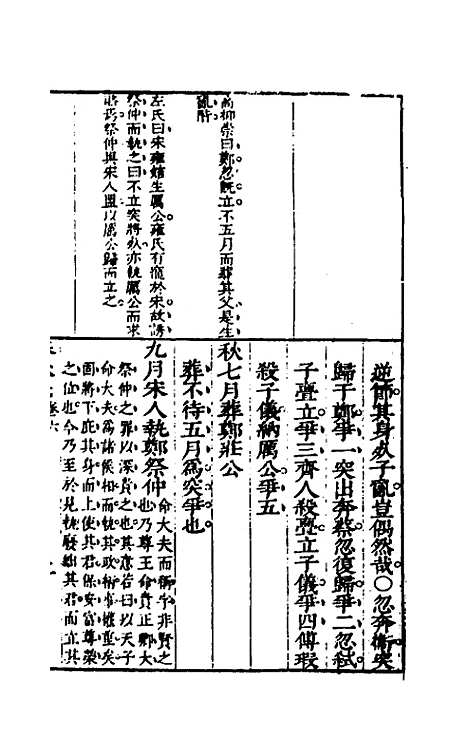 逆節其身殁子亂豈偶然哉〇忽奔衛突
歸于鄭爭一突出奔蔡忽復歸爭二忽弒
子亹立爭三齊人殺亹立子儀爭四傅瑕
殺子儀納厲公爭五
高抑崇曰鄭忽旣立不五月而葬其父是生
亂階
秋七月葬鄭莊公
葬不待五月為突爭也
左氏曰宋雍姞生厲公雍氏有寵於宋故誘
祭仲而執之曰不立突將死亦執厲公而求
賂焉祭仲與宋人盟以厲公歸而立之
九月宋人執鄭祭仲
命大夫而稱字非賢之
也乃尊王命貴正卿大
祭仲之罪以深責之也其意若曰以天子
命大夫為諸侯相而執其政柄事權重矣
固將下庇其身而上使其君保安富尊榮
之位也今乃至於見執廢絀其君而立其